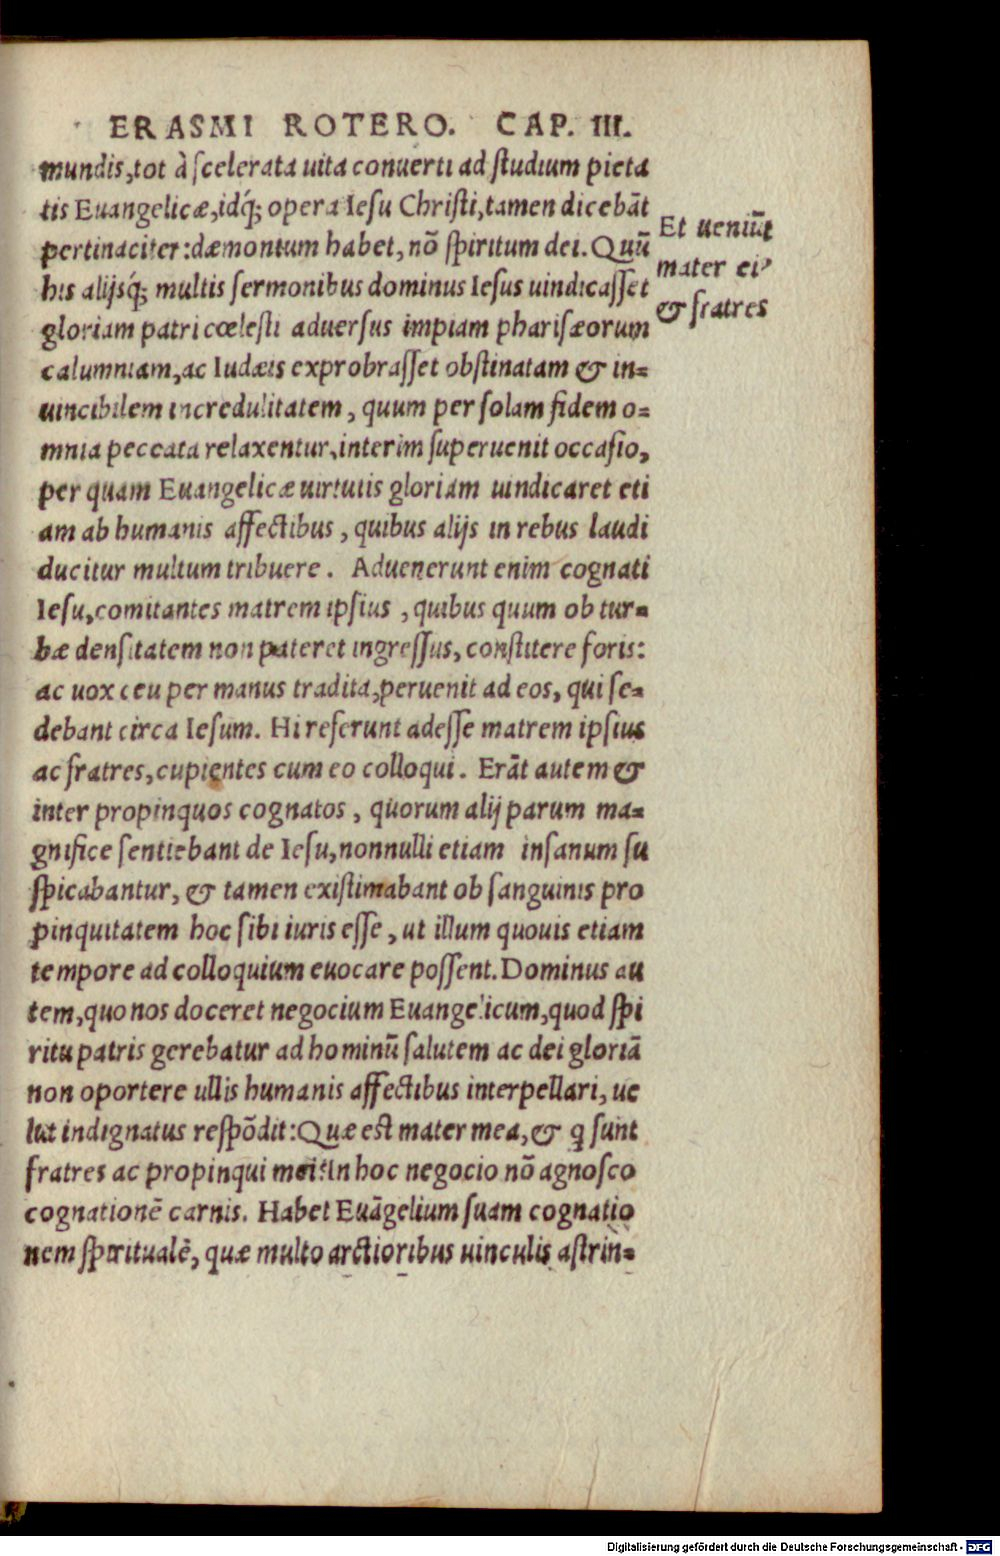 ERASMI ROTERO. CAP. III.
mundis, tot à scelerata uita conuerti ad studium pieta
tis Euangelicæ, idq́; opera Iesu Christi, tamen dicebãt
pertinaciter: dæmonium habet, nõ spiritum dei. Quũ
his alijsq́; multis sermonibus dominus Iesus uindicasset
gloriam patri cœlesti aduersus impiam pharisæorum
calumniam, ac Iudæis exprobrasset obstinatam & in=
uincibilem incredulitatem, quum per solam fidem o=
mnia peccata relaxentur, interim superuenit occasio,
per quam Euangelicæ uirtutis gloriam uindicaret eti
am ab humanis affectibus, quibus alijs in rebus laudi
ducitur multum tribuere. Aduenerunt enim cognati
Iesu, comitantes matrem ipsius, quibus quum ob tur=
bæ densitatem non pateret ingressus, constitere foris:
ac uox ceu per manus tradita, peruenit ad eos, qui se=
debant circa Iesum. Hi referunt adesse matrem ipsius
ac fratres, cupientes cum eo colloqui. Erãt autem &
inter propinquos cognatos, quorum alij parum ma=
gnifice sentiebant de Iesu, nonnulli etiam insanum su
spicabantur, & tamen existimabant ob sanguinis pro
pinquitatem hoc sibi iuris esse, ut illum quouis etiam
tempore ad colloquium euocare possent. Dominus au
tem, quo nos doceret negocium Euangelicum, quod spi
ritu patris gerebatur ad hominũ salutem ac dei gloriã
non oportere ullis humanis affectibus interpellari, ue
lut indignatus respõdit: Quæ est mater mea, & q̃ sunt
fratres ac propinqui mei? In hoc negocio nõ agnosco
cognationẽ carnis. Habet Euãgelium suam cognatio
nem spiritualẽ, quæ multo arctioribus uinculis astrin=
Et ueniũt
mater ei⁹
& fratres
Digitalisierung gefördert durch die Deutsche Forschungsgemeinschaft - DFG